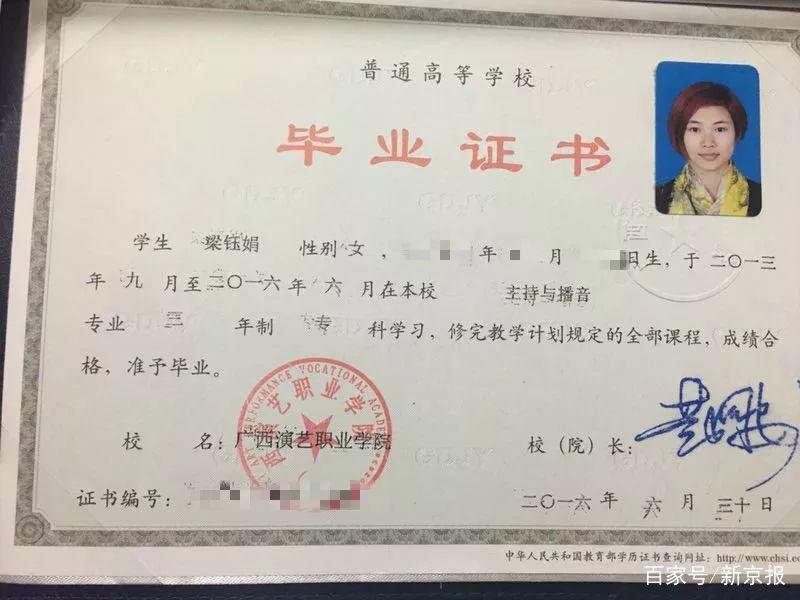 普通高等学校
毕业证书
学生 梁钰娟 性别 女, 年 月 日生, 于 二〇一三
年 九 月至 二〇一六 年 六 月在本校 主持与播音
专业 三 年制 专 科学习, 修完教学计划规定的全部课程, 成绩合
格, 准予毕业。
PERFORMANCE VOCATIONAL ACADE
西演艺职业学院
校 名: 广西演艺职业学院 校(院)长:
证书编号: 二〇一六 年 六 月 三十 日
中华人民共和国教育部学历证书查询网址: http://www.chsi.co
百家号/新京报